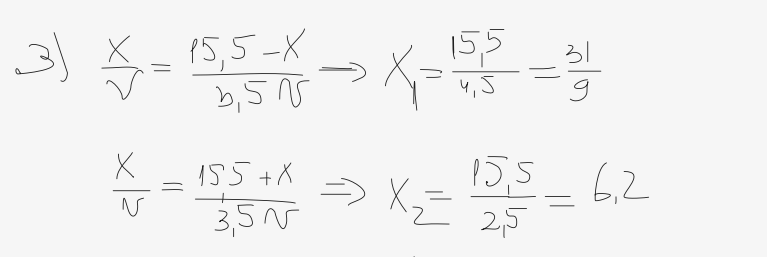 3) x/v = (15,5 - x)/(3,5 v) → x₁ = 15,5/4,5 = 31/9
x/v = (15,5 + x)/(3,5 v) ⇒ x₂ = 15,5/2,5 = 6,2